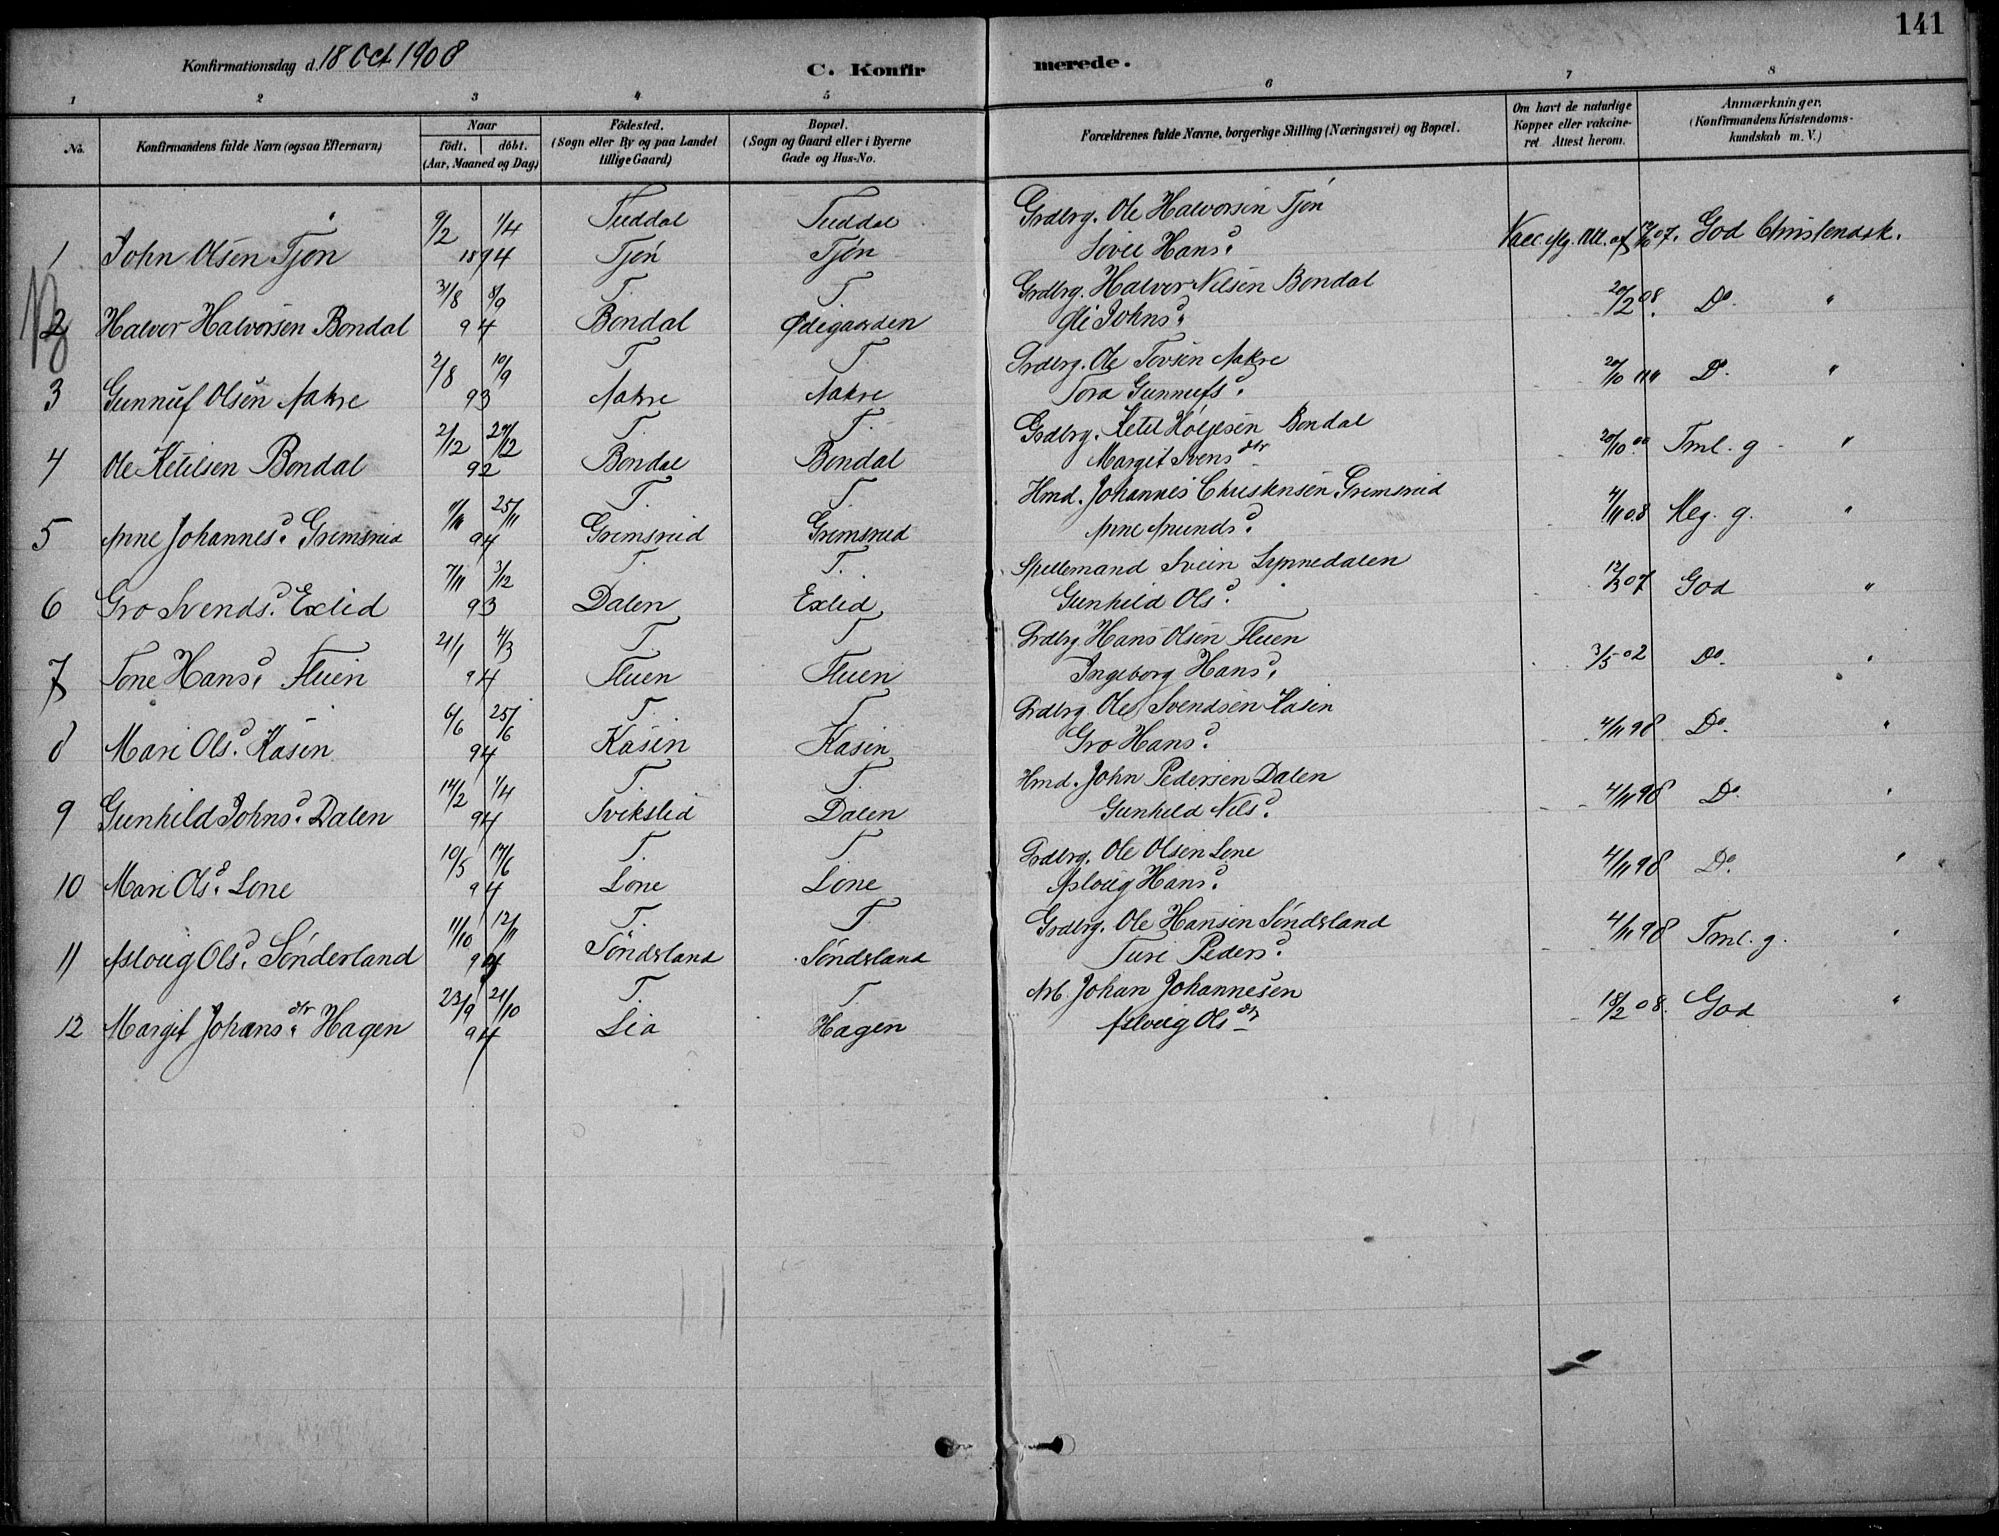 141
Konfirmationsdag d. 18 Oct 1908
C. Konfirmerede.
1 2 3 4 5 6 7 8
No. Konfirmandens fulde Navn (ogsaa Efternavn) Naar födt. döbt. (Aar, Maaned og Dag) Födested. (Sogn eller By og paa Landet tillige Gaard) Bopæl. (Sogn og Gaard eller i Byerne Gade og Hus-No. Forældrenes fulde Navne, borgerlige Stilling (Næringsvei) og Bopæl. Om havt de naturlige Kopper eller vakcineret Attest herom. Anmærkninger. (Konfirmandens Kristendomskundskab m. V.)
9/2 1/4 Tuddal Tuddal Grdbrg. Ole Halvorsen Tjøn
1 John Olsen Tjøn 1894 Tjøn Tjøn Hans d. 07. God Christendsk.
31/8 8/9 T. T. Grdbrg. Halvor Nilsen Bondal
2 Halvor Halvorsen Bondal 94 Bondal Ødegaarden Johns d. 20/2 08. Do. "
2/8 10/9 T T. Grdbrg. Ole Tovsen Aakre
3 Gunnuf Olsen Aakre 93 Aakre Aakre Tora Gunnufs d. 20/10 Do. "
2/12 27/12 T. T. Grdbrg. Ketil Høljesen Bondal
4 Ole Ketilsen Bondal 92 Bondal Bondal Margit Svens dtr 20/10 00 Tml. g - "
25/11 T. T. Hmd. Johannes Christensen Grimsrud
5 Anne Johannes d. Grimsrud 94 Grimsrud Grimsrud Anne Amunds d. 4/11 08 Meg. g. "
7/11 3/12 T. T. Spillemand Svein Lynnedalen
6 Gro Svends d. Exlid 93 Dalen Exlid Gunhild Ols d. 07 God "
21/1 4/3 T. T Grdbrg. Hans Olsen Fluen
7 Tone Hans d. Fluen 94 Fluen Fluen Ingeborg Hans d. 3/5 02 Do. "
6/6 25/6 T. T Grdbrg. Ole Svendsen Kasin
8 Mari Ols d. Kasin 94 Kasin Kasin Gro Hans d. 4/11 98 Do. "
14/2 1/4 T. T. Hmd. John Pedersen Dalen
9 Gunhild Johns d. Dalen 94 Svikslid Dalen Gunhild Nils d. 4/11 98 Do. "
10/5 17/6 T. T Grdbrg. Ole Olsen Lone
10 Mari Ols d. Lone 94 Lone Lone Aslaug Hans d. 4/11 98 Do. "
11/10 12/11 T. T. Grdbrg. Ole Hansen Sønderland
11 Aslaug Ols d. Sønderland 94 Sønderland Sønderland Turi Peders d. 4/11 98 Tml. g. "
23/9 21/10 T. T. Arb. Johan Johannesen
12 Margit Johans dtr. Hagen 94 Lia Hagen Aslaug Ols dtr 18/2 08. God "